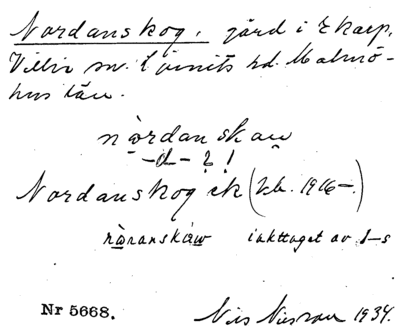 Nordanskog, gård i Ekarp,
Villie sn. Ljunits hd. Malmö-
hus län.
nòrdanskaw
-d- ? !
Nordanskog ek (Kb. 1916-.)
nàranskàw iakttaget av I-s
Nr 5668. Nils Nilsson 1934.